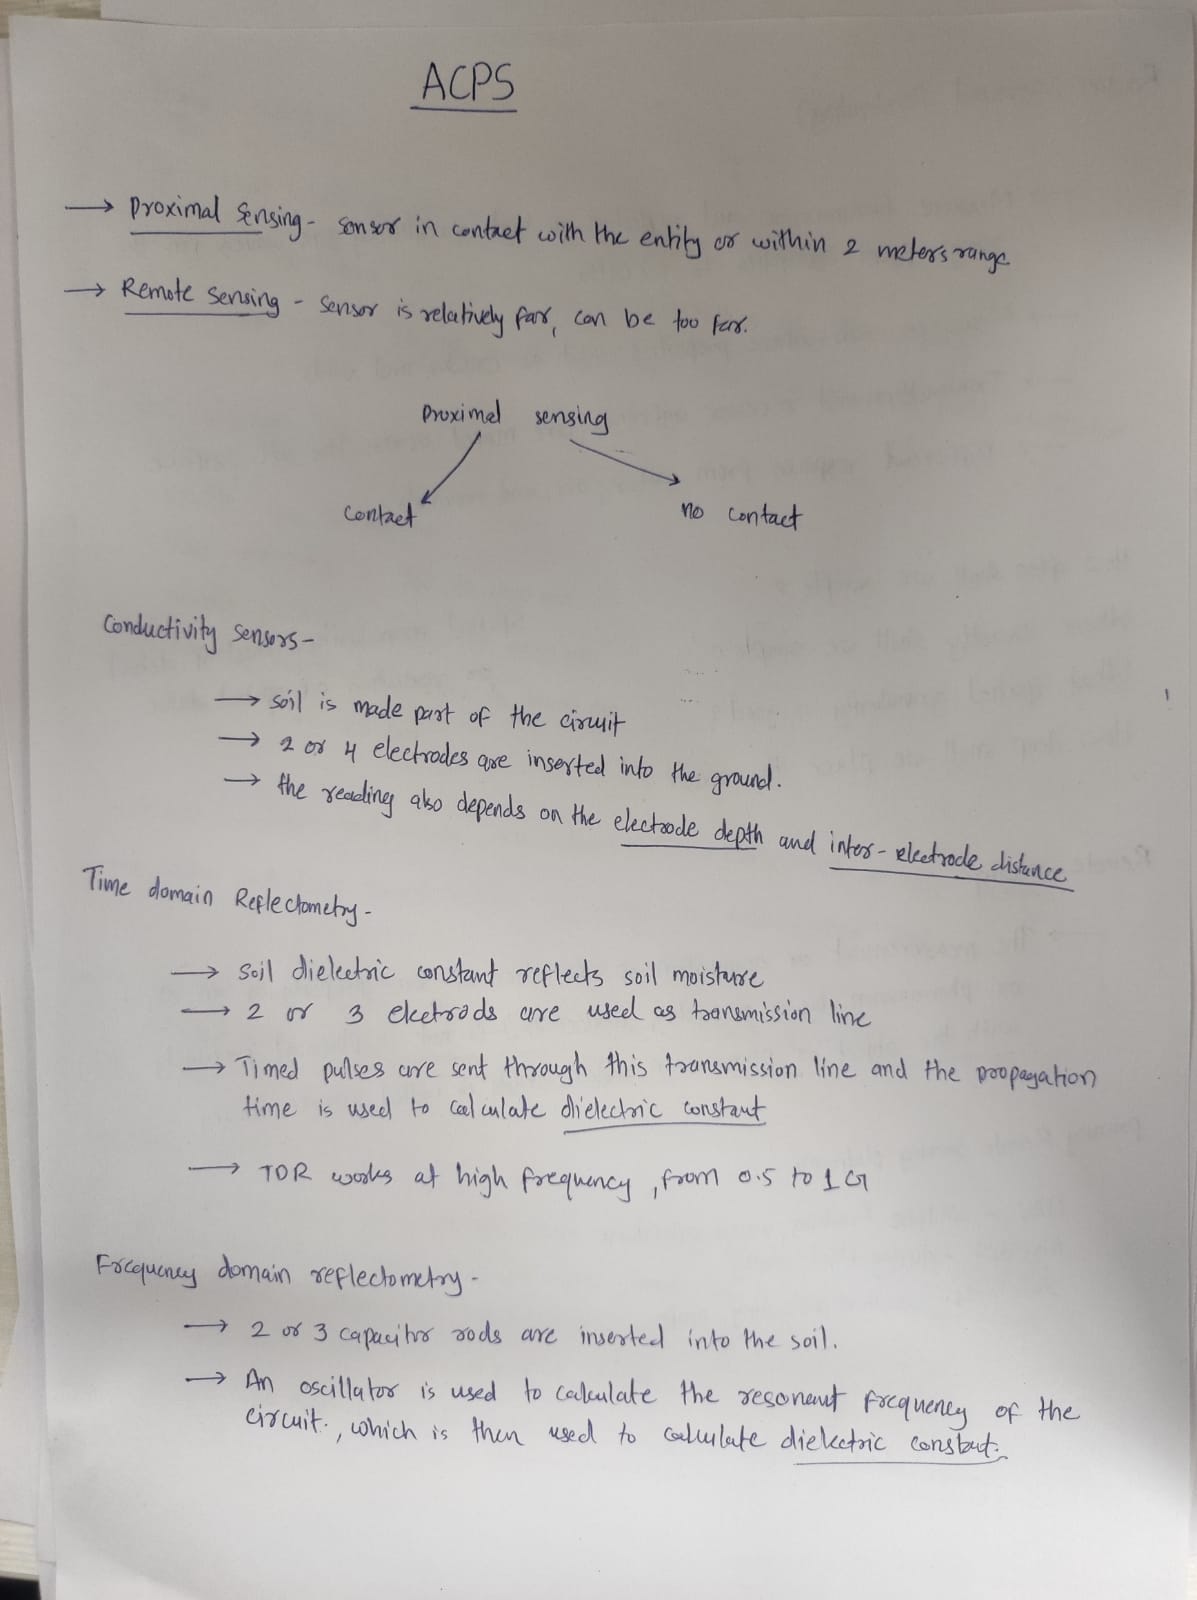 ACPS
→ Proximal Sensing - sensor in contact with the entity or within 2 meters range
→ Remote Sensing - Sensor is relatively far, can be too far.
Proximal sensing
contact no contact
Conductivity sensors -
→ soil is made part of the circuit
→ 2 or 4 electrodes are inserted into the ground.
→ the reading also depends on the electrode depth and inter-electrode distance
Time domain Reflectometry -
→ Soil dielectric constant reflects soil moisture
→ 2 or 3 electrods are used as transmission line
→ Timed pulses are sent through this transmission line and the propagation
time is used to calculate dielectric constant
→ TDR works at high frequency, from 0.5 to 1 G
Frequency domain reflectometry -
→ 2 or 3 capacitor rods are inserted into the soil.
→ An oscillator is used to calculate the resonant frequency of the
circuit., which is then used to calculate dielectric constant.